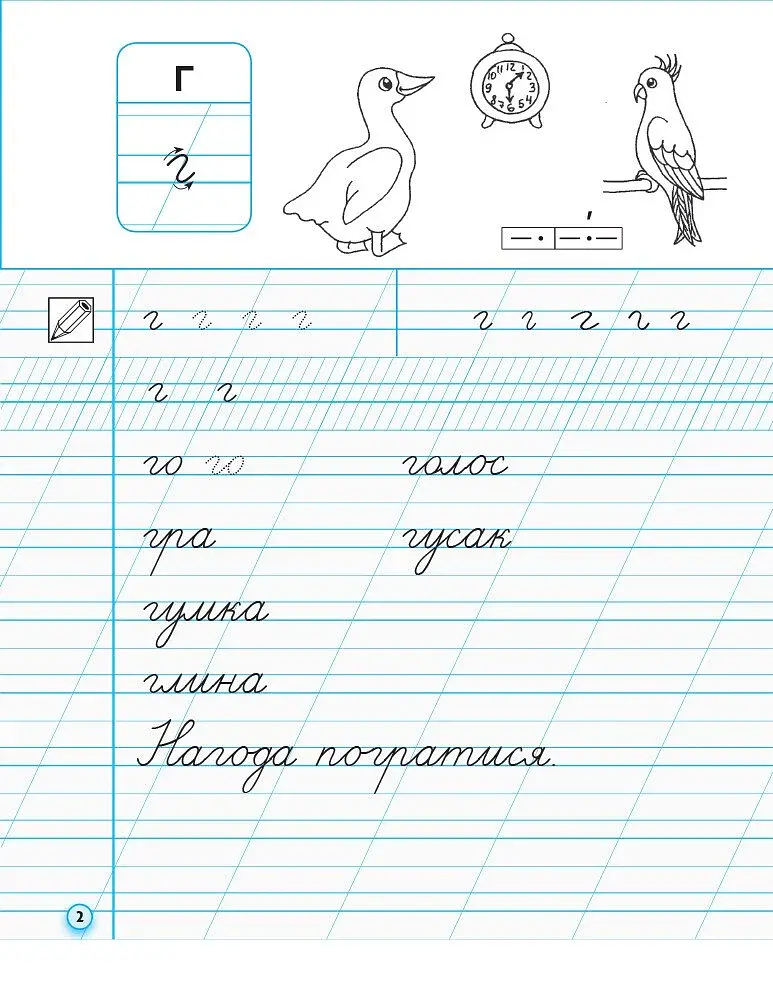 г
г
10 11 12 1 2 3 4 5 6 7 8 9
г г г г г г г г г
г г
го го голос
гра гусак
гумка
глина
Нагода погратися.
2